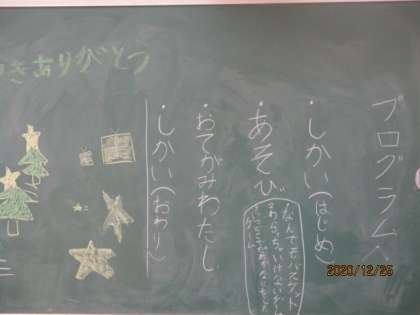 プログラム
・しかい(はじめ)
・あそび
なんでもバスケット
・おてがみわたし
・しかい(おわり)
きありがとう
2020/12/25